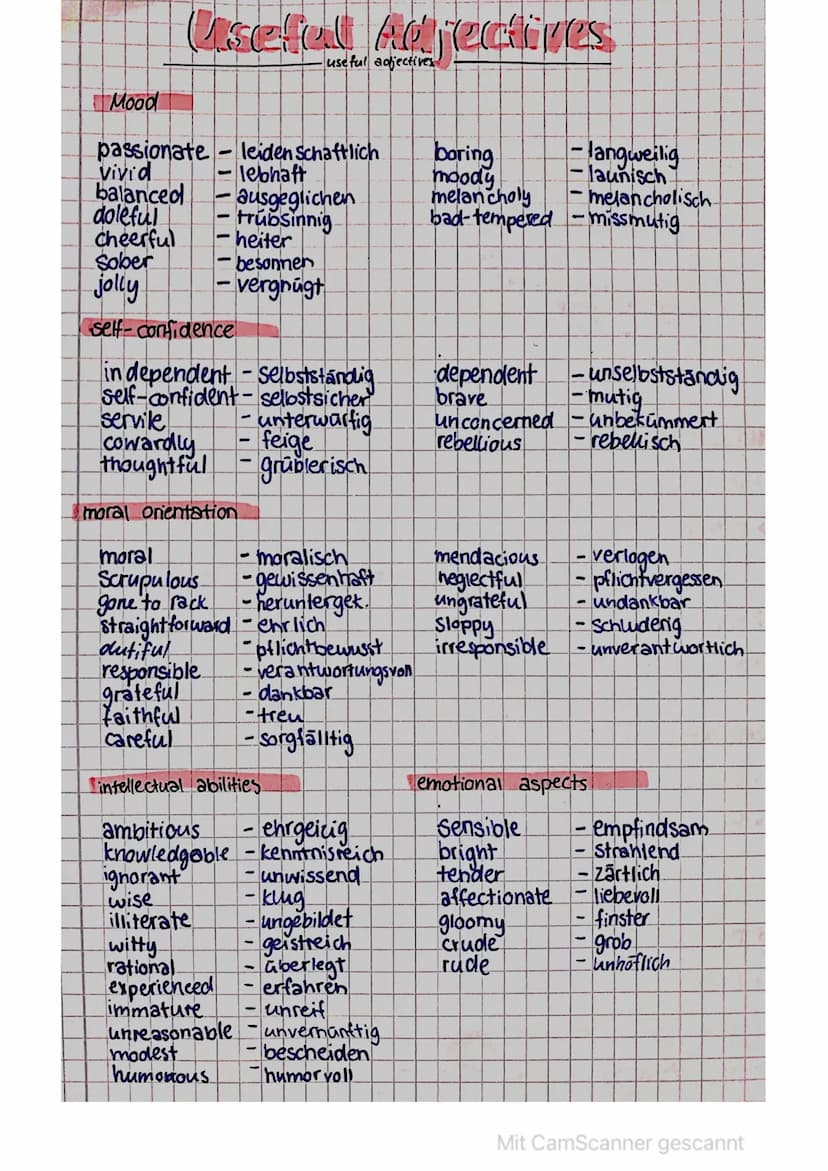 Useful Adjectives
useful adjectives
Mood
passionate - leidenschaftlich
vivid - lebhaft
balanced - ausgeglichen
doleful - trübsinnig
cheerful - heiter
sober - besonnen
jolly - vergnügt
boring - langweilig
moody - launisch
melancholy - melancholisch
bad-tempered - missmutig
self-confidence
independent - selbstständig
self-confident - selbstsicher
servile - unterwürfig
cowardly - feige
thoughtful - grüblerisch
dependent - unselbstständig
brave - mutig
unconcerned - unbekümmert
rebellious - rebellisch
moral orientation
moral - moralisch
scrupulous - gewissenhaft
gone to rack - heruntergek.
straightforward - ehrlich
dutiful - pflichtbewusst
responsible - verantwortungsvoll
grateful - dankbar
faithful - treu
careful - sorgfälltig
mendacious - verlogen
neglectful - pflichtvergessen
ungrateful - undankbar
sloppy - schluderig
irresponsible - unverantwortlich
intellectual abilities
ambitious - ehrgeizig
knowledgable - kenntnisreich
ignorant - unwissend
wise - klug
illiterate - ungebildet
witty - geistreich
rational - überlegt
experienced - erfahren
immature - unreif
unreasonable - unvernünftig
modest - bescheiden
humorous - humorvoll
emotional aspects
sensible - empfindsam
bright - strahlend
tender - zärtlich
affectionate - liebevoll
gloomy - finster
crude - grob
rude - unhöflich
Mit CamScanner gescannt